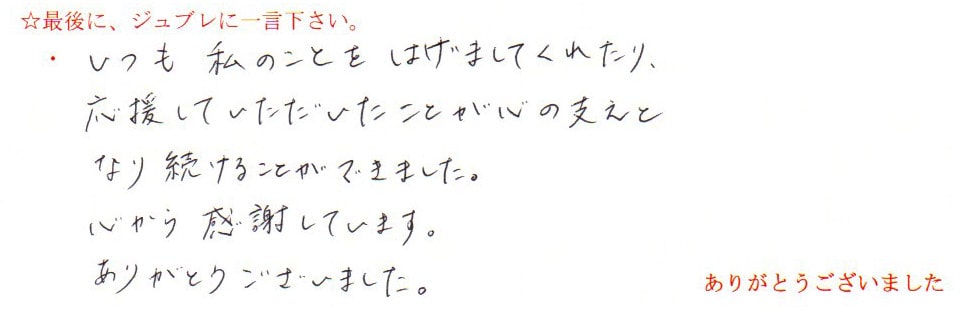 ☆最後に、ジュブレに一言下さい。
・いつも 私のことを はげましてくれたり、
応援していただいたことが心の支えと
なり続けることができました。
心から 感謝しています。
ありがとうございました。
ありがとうございました